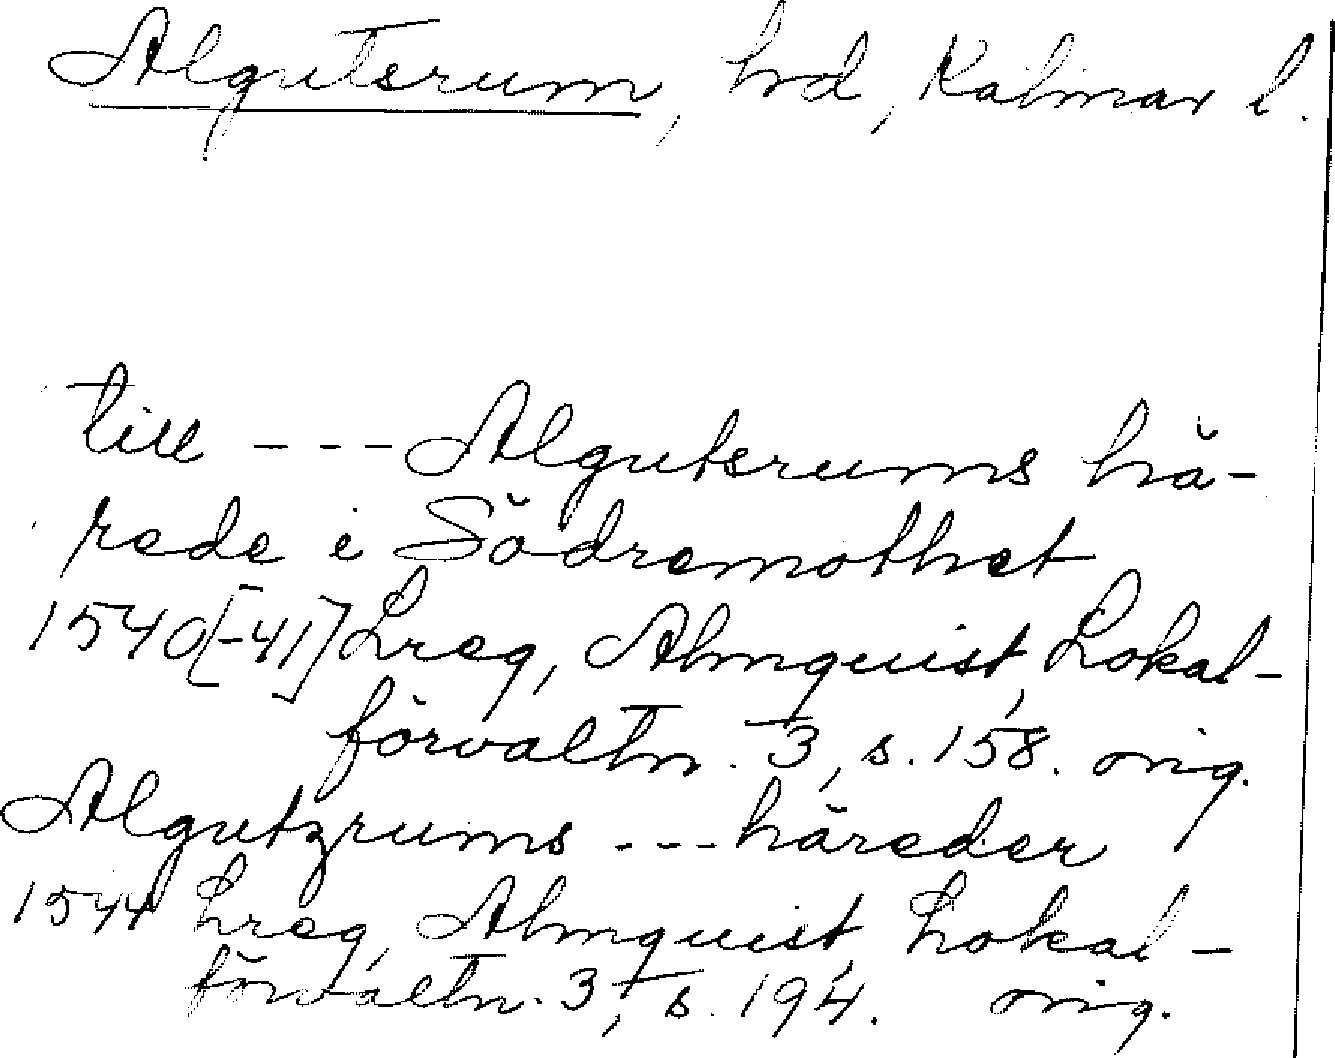 Algutsrum, hrd, Kalmar l.
till --- Algutsrums hä-
rede i Södremothet
1540[-41] Lreg, Almquist, Lokal-
förvaltn. 3, s. 158. orig.
Algutzrums --- häreder
1544 Lreg, Almquist, Lokal-
förvaltn. 3, s. 194. orig.